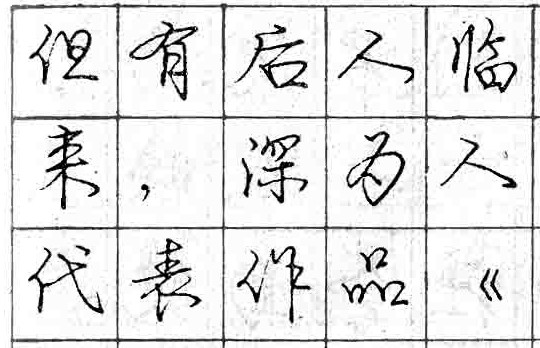 但有后人临
来，深为人
代表作品《